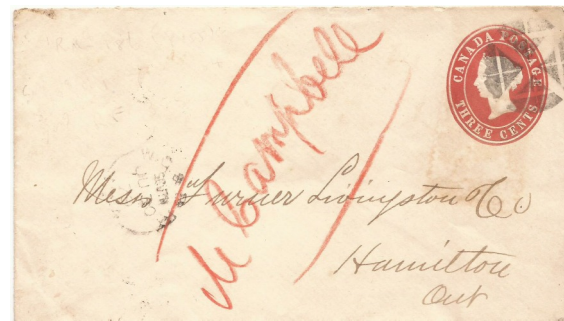 CANADA POSTAGE
THREE CENTS
Mc Campbell
Messrs Turner Livingston & Co
Hamilton
Ont